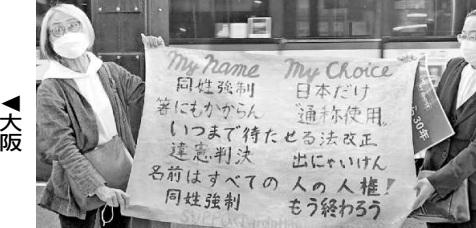 ◀大阪
My Name My Choice
同姓強制 日本だけ
箸にもかからん "通称使用"
いつまで待たせる法改正
違憲判決 出にゃいけん
名前はすべての人の人権!
同姓強制 もう終わろう
30年